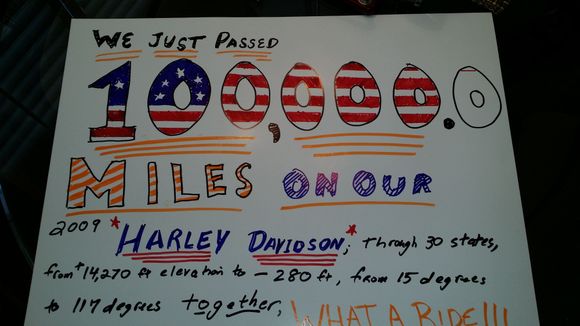 WE JUST PASSED
100,000.0
MILES ON OUR
2009 *HARLEY DAVIDSON*; Through 30 states,
from +14,270 ft elevation to - 280 ft, from 15 degrees
to 117 degrees together, WHAT A RIDE!!!